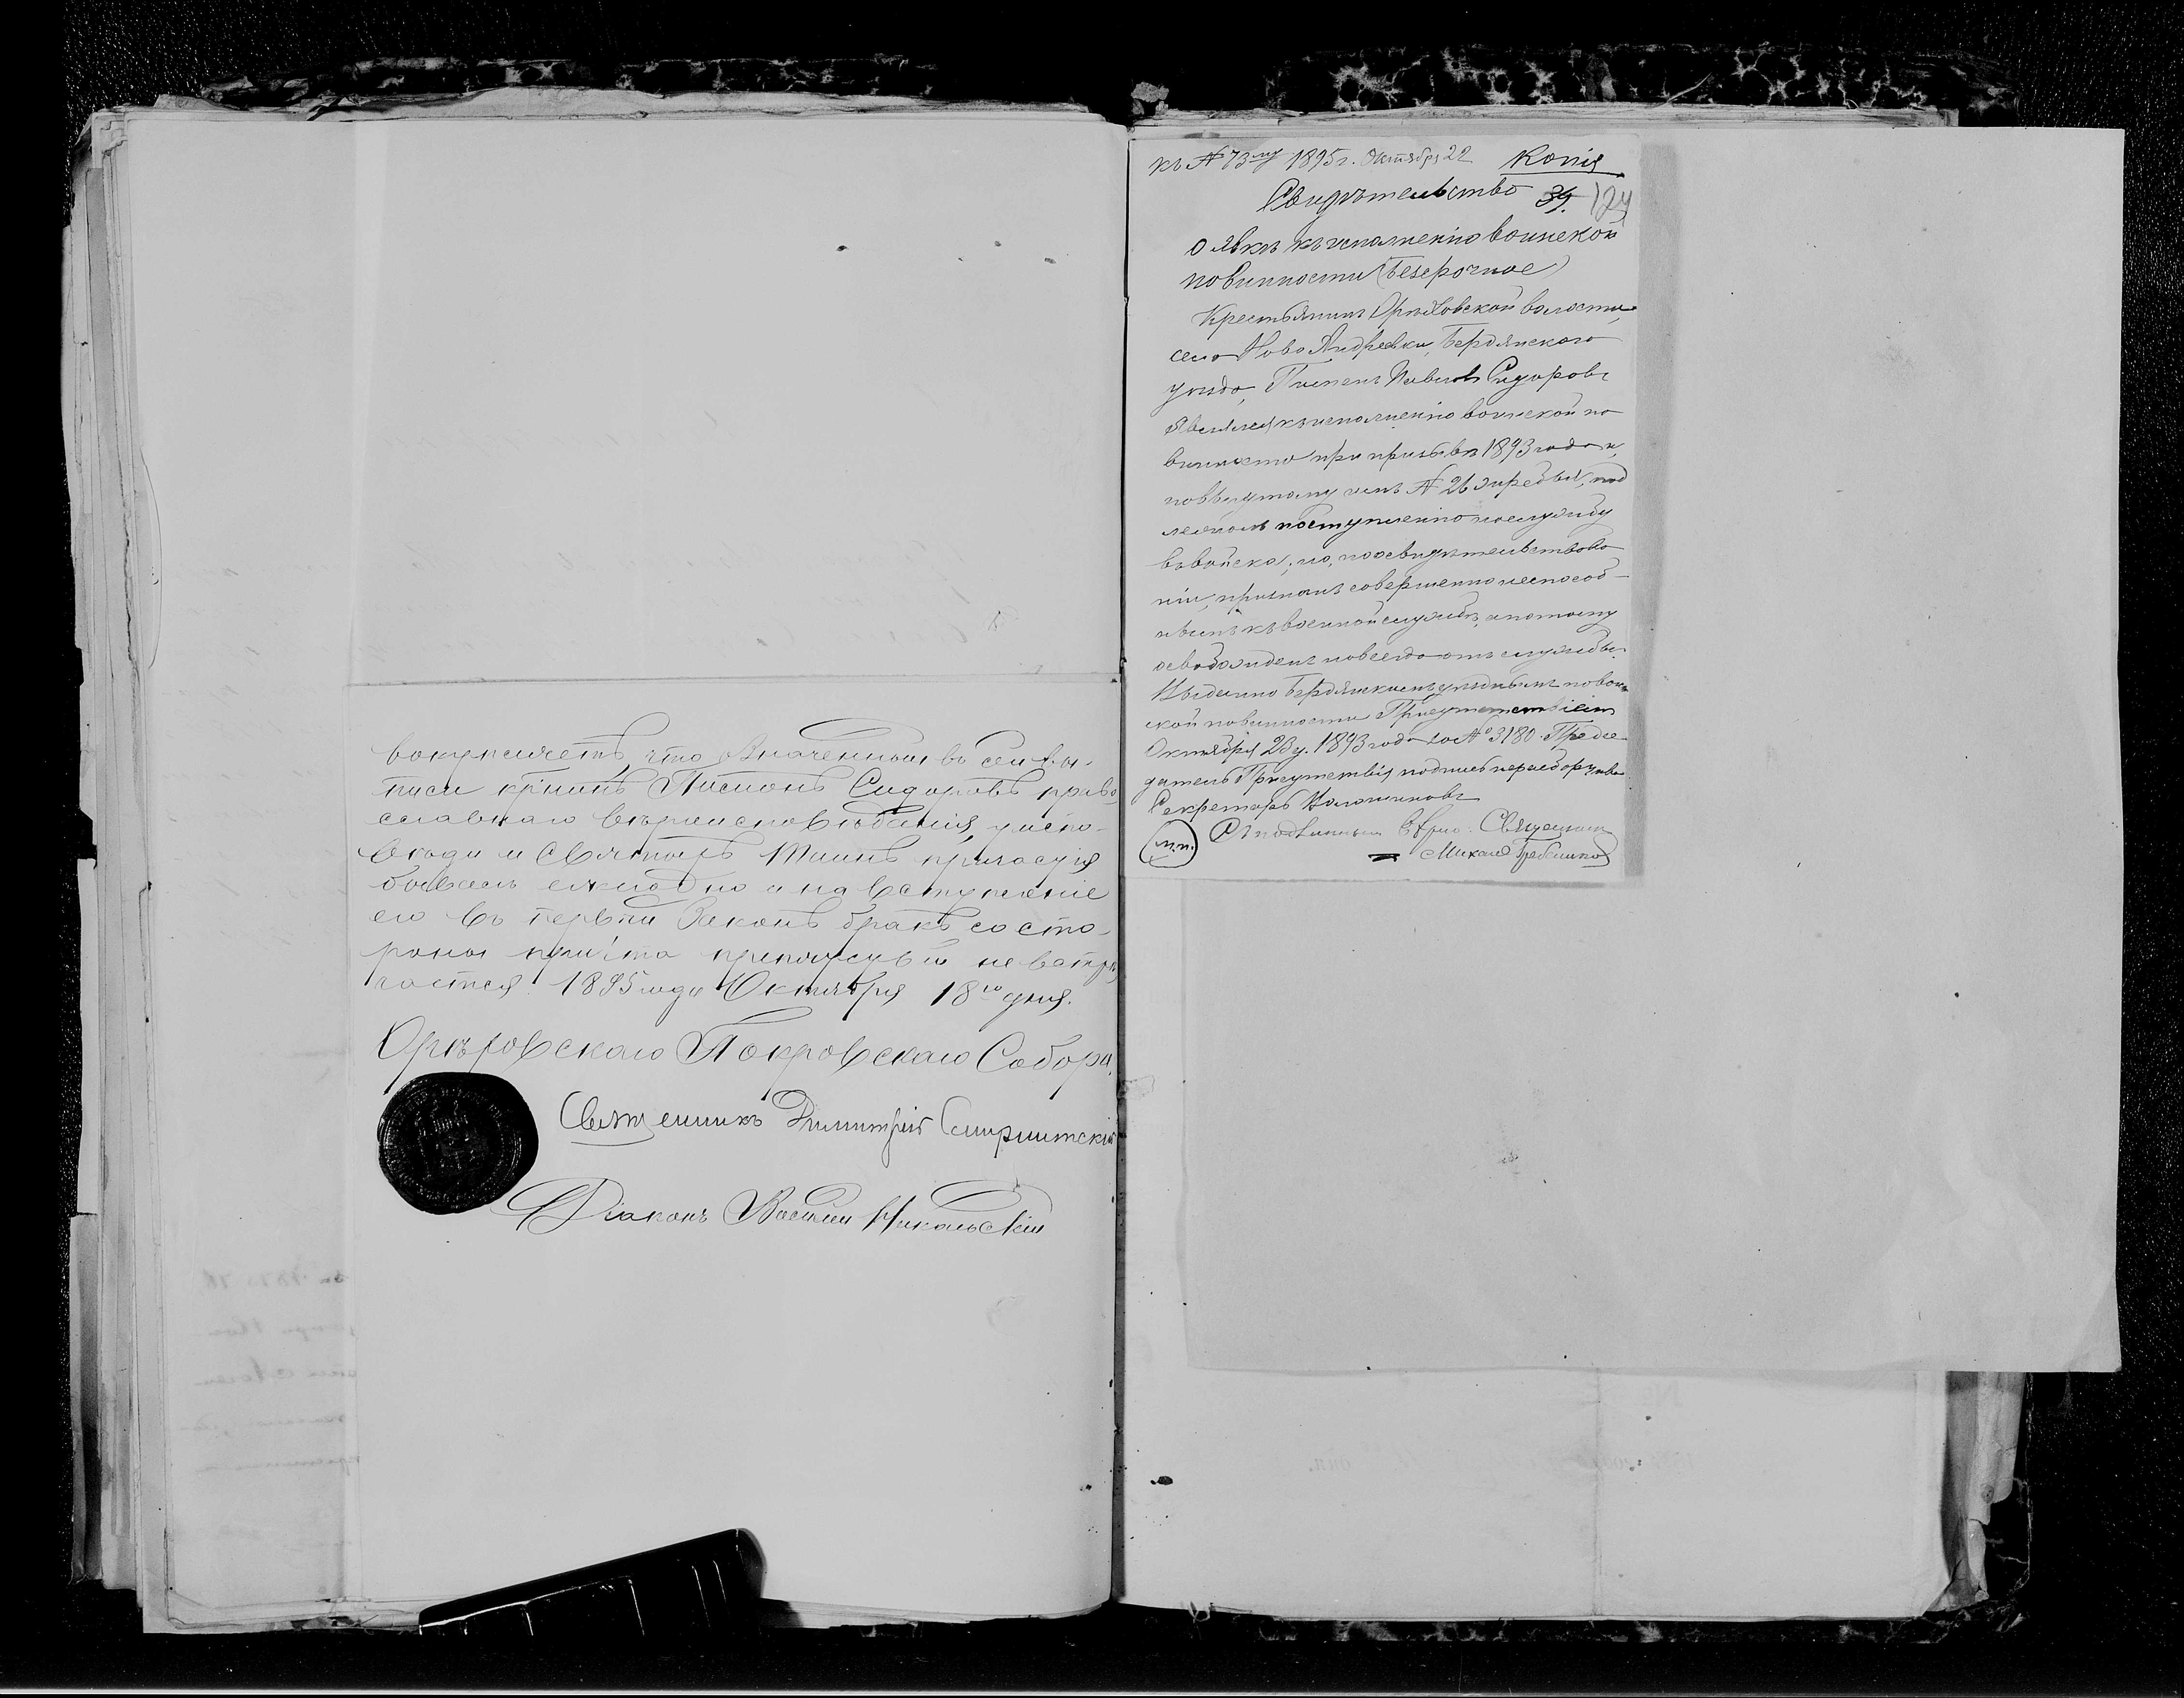 вокупляетъ, что означенный въ сей вы-
писи кр-нинъ Пименъ Сидоровъ право-
славнаго вѣроисповѣданія, у испо-
вѣди и Святыхъ Таинъ причастія
бываетъ ежегодно и на вступленіе
его въ первый законъ бракъ со сто-
роны причта препятствій не встрѣ-
чается 1895 года Октября 18го дня.
Орѣховскаго Покровскаго Собора,
Священникъ Димитрій
Діаконъ Василій Никольскій
къ № 73му 1895 г. Октября 22 Копія
Свидѣтельство 39. 124
о явкѣ къ исполненію воинской
повинности (Безсрочное)
Крестьянинъ Орѣховской волости,
села Ново Андреевки, Бердянскаго
уѣзда, Пименъ Павловъ Сидоровъ
явился къ исполненію воинской по-
винности при призывѣ 1893 года и,
по вынутому имъ № 26 жребья, под
лежалъ поступленію на службу
въ войска; но, по освидѣтельствова-
ніи, признанъ совершенно неспособ-
нымъ къ военной службѣ, а потому
освобожденъ навсегда отъ службы.
Выдано Бердянскимъ уѣзднымъ по воин-
ской повинности Присутствіемъ
Октября 23 д. 1893 года за № 3180. Предсе-
датель Присутствія подпись неразборчива
Секретарь
м.п. Съ подлиннымъ вѣрно: Священникъ
Михаилъ